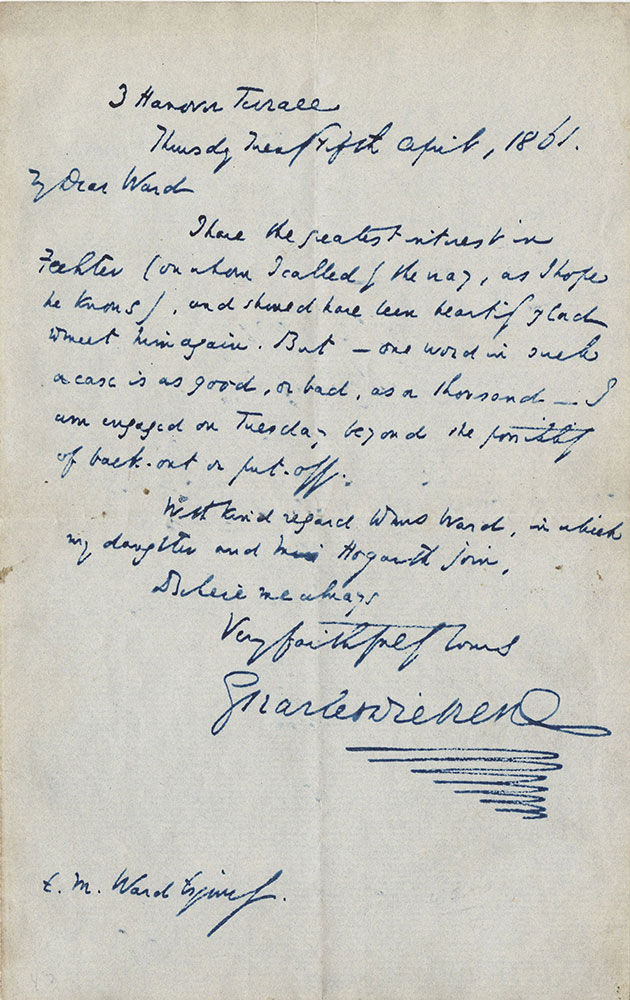 3 Hanover Terrace
Thursday Twenty Fifth April, 1861.
My Dear Ward
I have the greatest interest in
Fechter (on whom I called by the way, as I hope
he knows), and should have been heartily glad
to meet him again. But – one word in such
a case is as good, or bad, as a thousand – I
am engaged on Tuesday, beyond the possibility
of back-out or put-off.
With kind regard to Mrs Ward, in which
my daughter and Miss Hogarth join,
Believe me always
Very faithfully Yours
Charles Dickens
E. M. Ward Esquire.